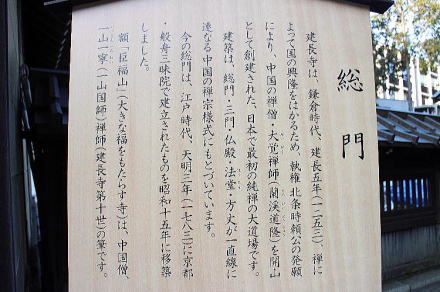 総門
建長寺は、鎌倉時代、建長五年(一二五三)、禅に
よって国の興隆をはかるため、執権北条時頼公の発願
により、中国の禅僧・大覚禅師(蘭渓道隆)を開山
として創建された、日本で最初の純禅の大道場です。
建築は、総門・三門・仏殿・法堂・方丈が一直線に
連なる中国の禅宗様式にもとづいています。
今の総門は、江戸時代、天明三年(一七八三)に京都
・般舟三昧院で建立されたものを昭和十五年に移築
しました。
額「巨福山」(大きな福をもたらす寺)は、中国僧、
一山一寧(一山国師)禅師(建長寺第十世)の筆です。